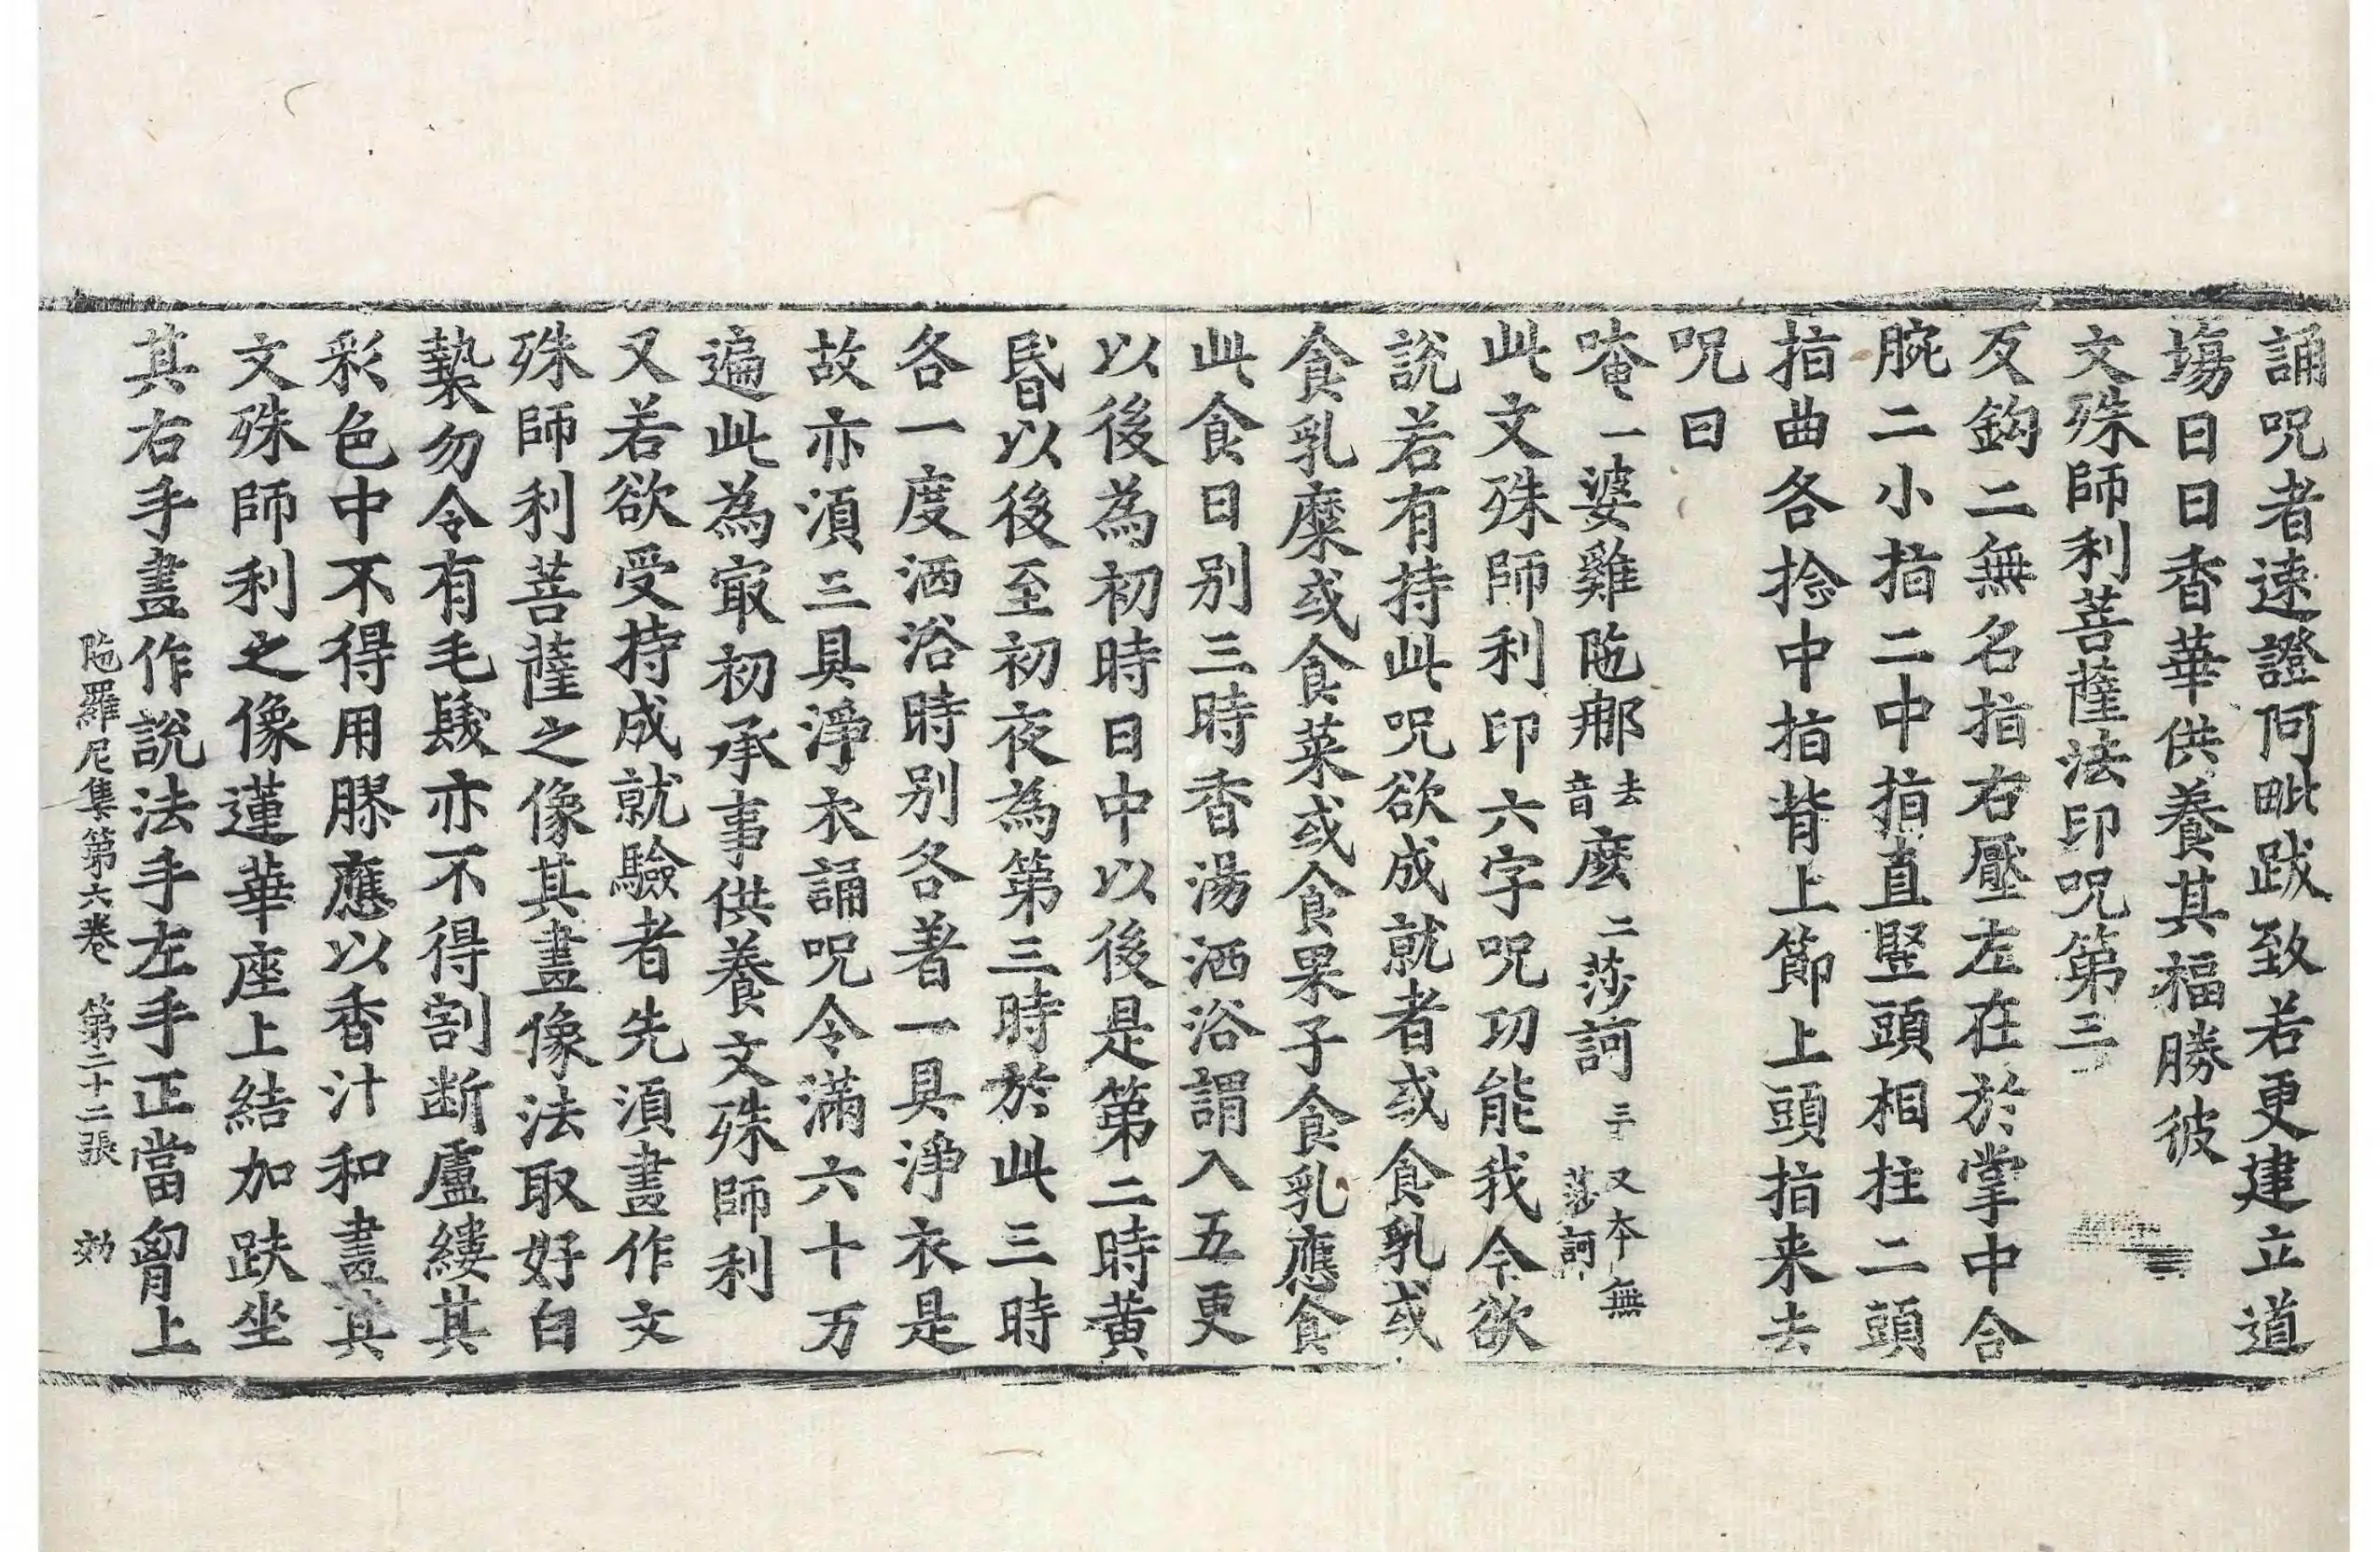 誦呪者速證阿毗跋致若更建立道
場日日香華供養其福勝彼
文殊師利菩薩法印呪第三
反鉤二無名指右壓左在於掌中合
腕二小指二中指直竪頭相拄二頭
指曲各捻中指背上節上頭指来去
呪曰
唵一婆雞陁那去音麼二莎訶三又本無莎訶
此文殊師利印六字呪功能我今欲
說若有持此呪欲成就者或食乳或
食乳糜或食菜或食果子食乳應食
此食日別三時香湯洒浴謂入五更
以後為初時日中以後是第二時黄
昬以後至初夜為第三時於此三時
各一度洒浴時別各著一具淨衣是
故亦湏三具淨衣誦呪令滿六十万
遍此為㝡初承事供養文殊師利
又若欲受持成就驗者先湏畫作文
殊師利菩薩之像其畫像法取好白
㲲勿令有毛髮亦不得割断盧縷其
彩色中不得用膠應以香汁和畫其
文殊師利之像蓮華座上結加趺坐
其右手畫作說法手左手正當胷上
陁羅尼集第六卷 第二十二張 効